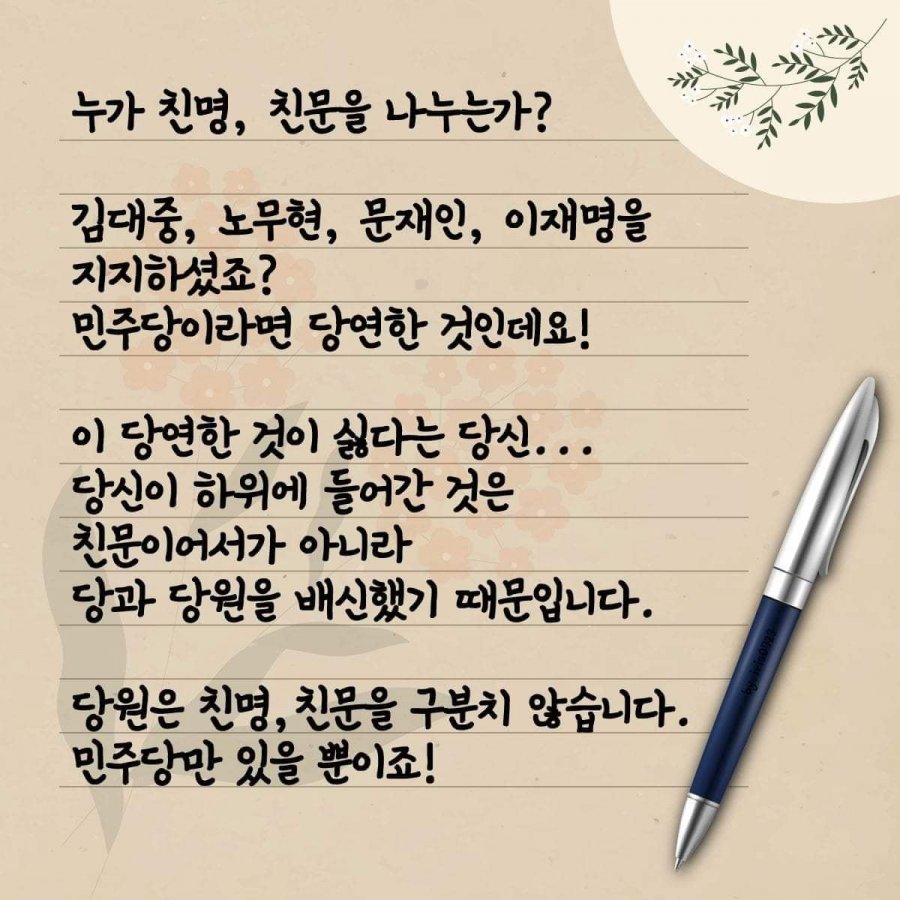 누가 친명, 친문을 나누는가?
김대중, 노무현, 문재인, 이재명을
지지하셨죠?
민주당이라면 당연한 것인데요!
이 당연한 것이 싫다는 당신...
당신이 하위에 들어간 것은
친문이어서가 아니라
당과 당원을 배신했기 때문입니다.
당원은 친명, 친문을 구분치 않습니다.
민주당만 있을 뿐이죠!